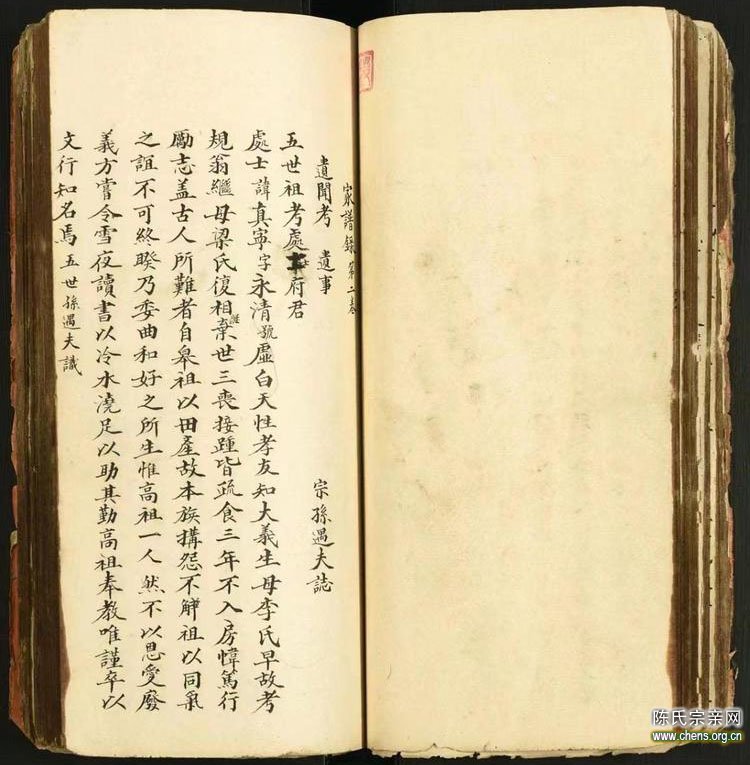 家譜錄第二卷
遺聞考 遺事 宗孫遇夫誌
五世祖考處士府君
處士諱真寧字永清號虛白天性孝友知大義生母李氏早故考
規翁繼母梁氏復相繼棄世三喪接踵皆疏食三年不入房幃篤行
勵志盖古人所難者自皋祖以田產故本族搆怨不解祖以同氣
之誼不可終暌乃委曲和好之所生惟高祖一人然不以恩愛廢
義方嘗令雪夜讀書以冷水澆足以助其勤高祖奉教唯謹卒以
文行知名焉五世孫遇夫識
陈氏宗亲网
www.chens.org.cn